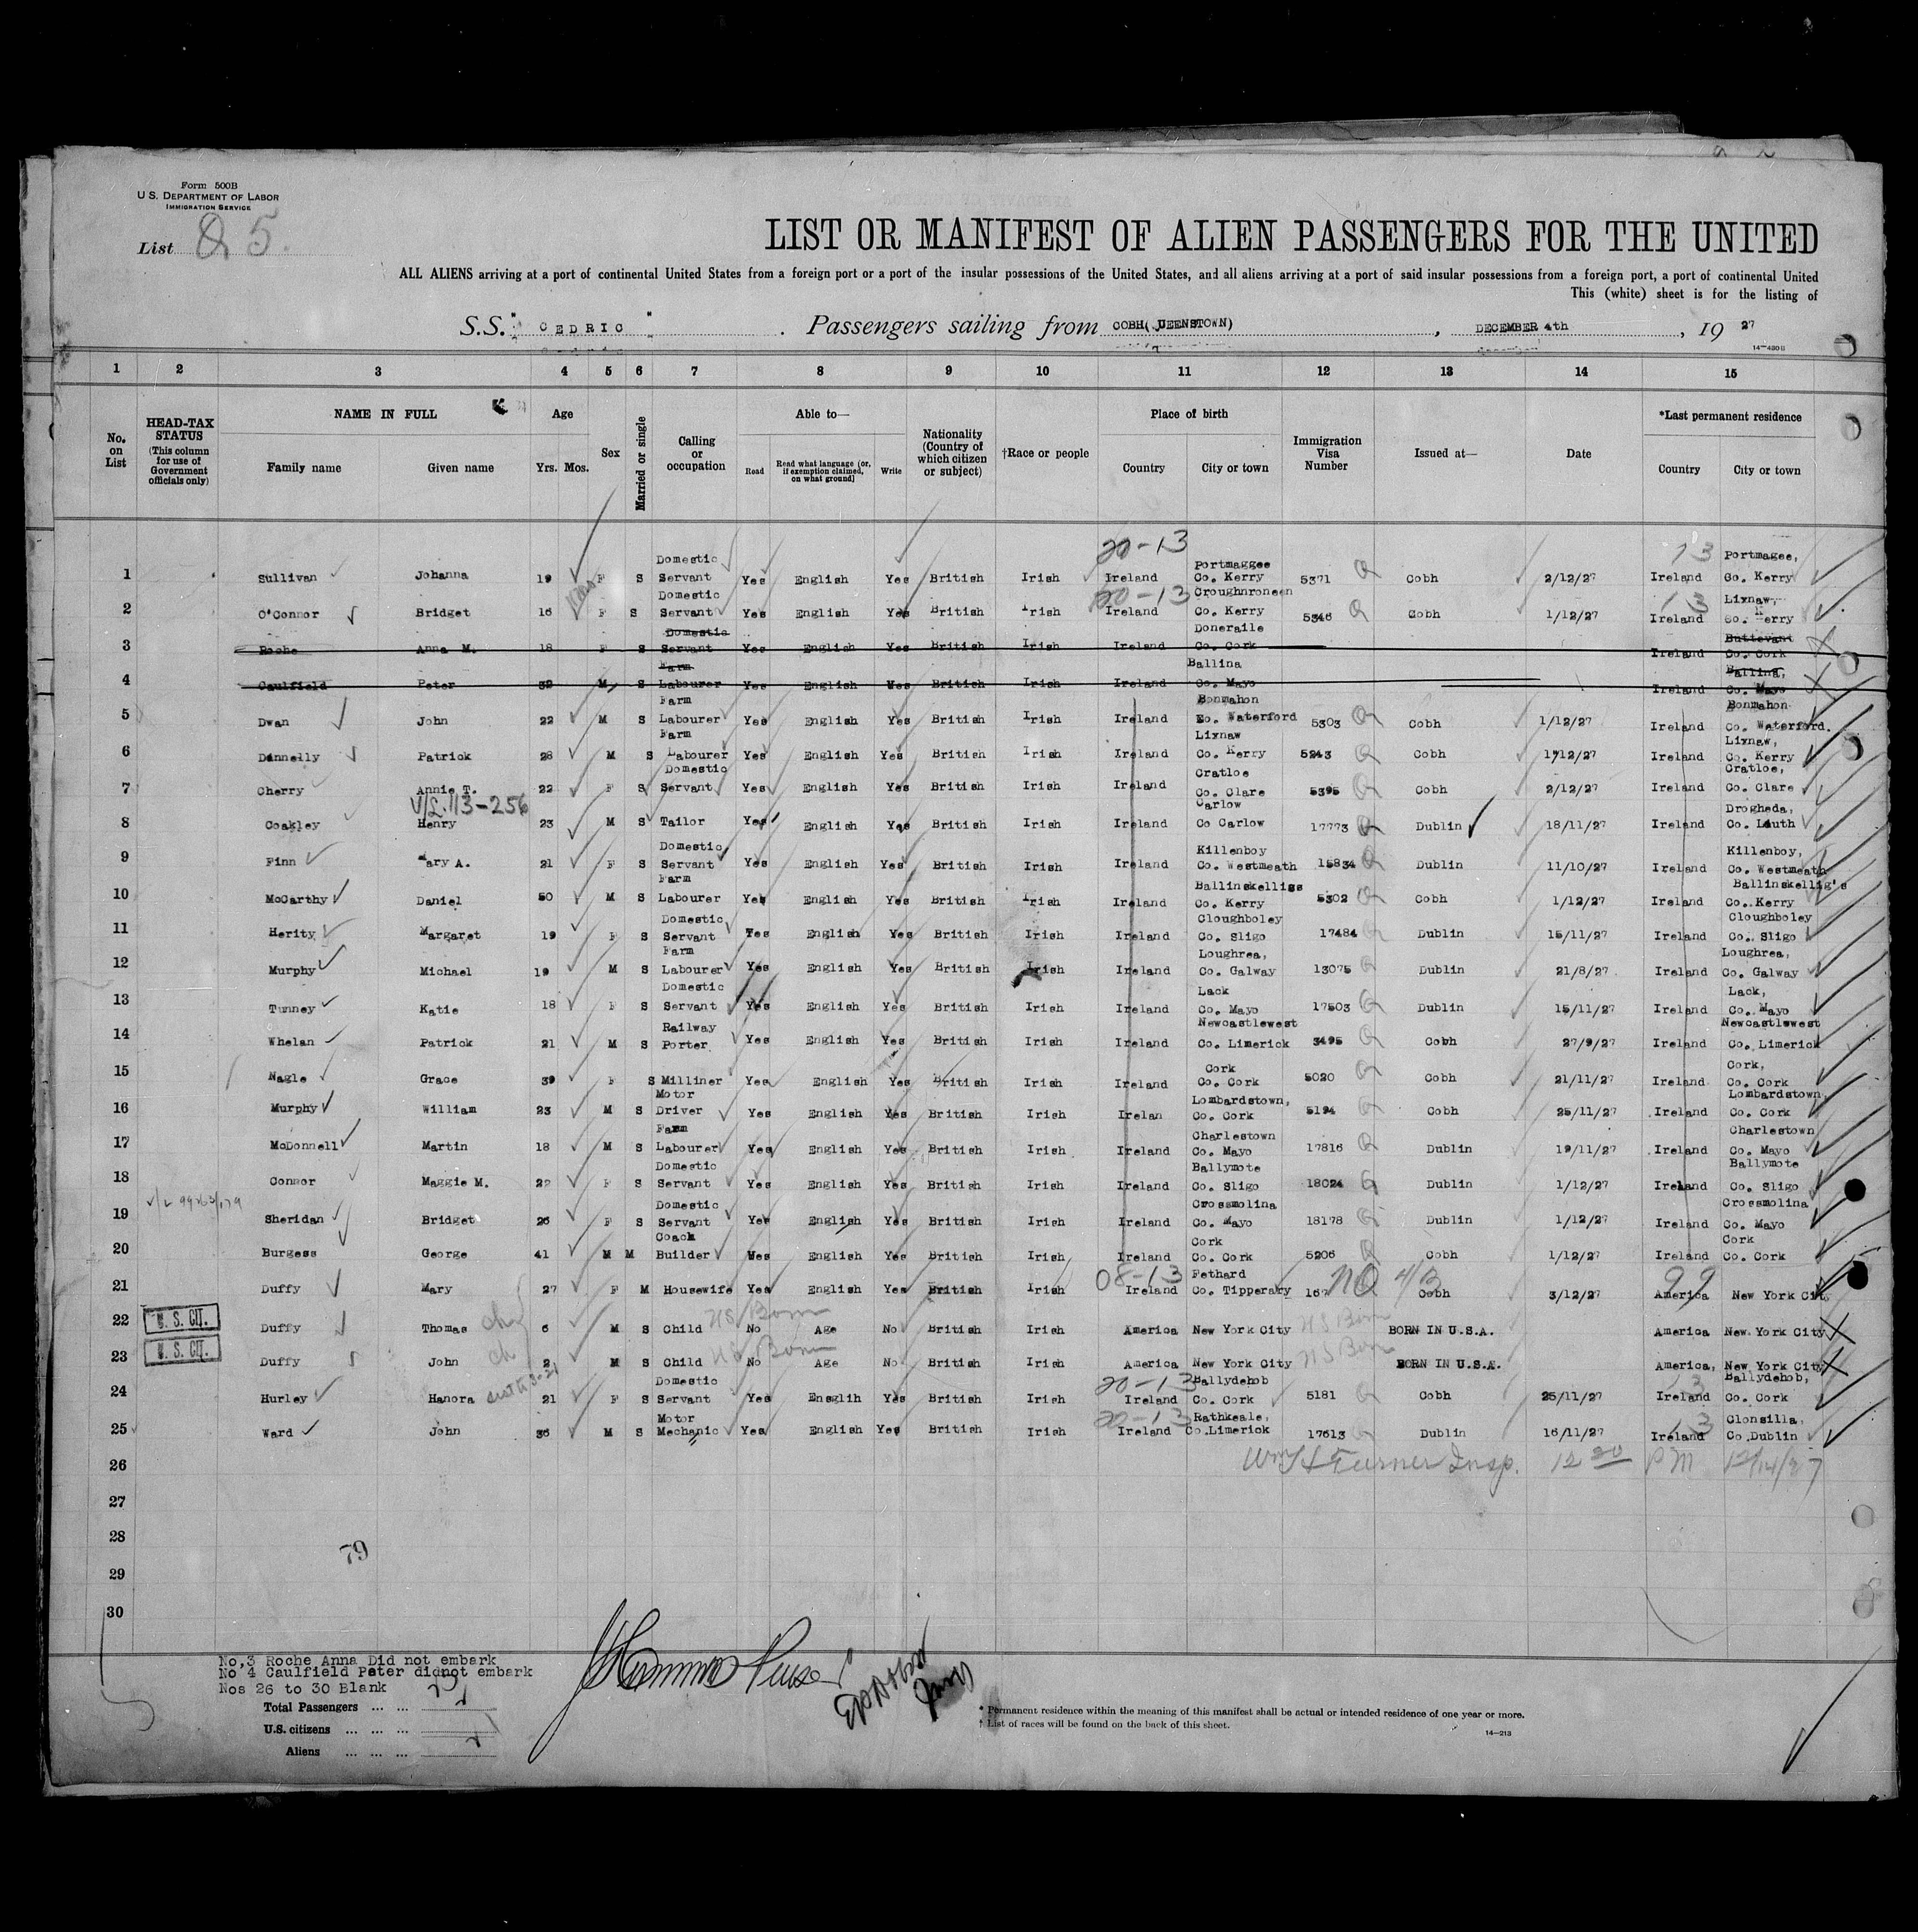 Form 500B
U.S. DEPARTMENT OF LABOR
IMMIGRATION SERVICE
List 5
LIST OR MANIFEST OF ALIEN PASSENGERS FOR THE UNITED
ALL ALIENS arriving at a port of continental United States from a foreign port or a port of the insular possessions of the United States, and all aliens arriving at a port of said insular possessions from a foreign port, a port of continental United
This (white) sheet is for the listing of
S.S. "CEDRIC" . Passengers sailing from COBH( UEENSTOWN) , DECEMBER 4th , 19 27
14—480B
1 2 3 4 5 6 7 8 9 10 11 12 13 14 15
No. on List
HEAD-TAX STATUS (This column for use of Government officials only)
NAME IN FULL Family name Given name
Age Yrs. Mos.
Sex
Married or single
Calling or occupation
Able to— Read Read what language (or, if exemption claimed, on what ground) Write
Nationality (Country of which citizen or subject)
†Race or people
Place of birth Country City or town
Immigration Visa Number
Issued at—
Date
*Last permanent residence Country City or town
20-13 13
1 Sullivan Johanna 19 F S Domestic Servant Yes English Yes British Irish Ireland Portmaggee Co. Kerry 5371 Cobh 2/12/27 Ireland Portmagee, Co. Kerry
20-13 13
2 O'Connor Bridget 16 F S Domestic Servant Yes English Yes British Irish Ireland Croughnroneen Co. Kerry 5346 Cobh 1/12/27 Ireland Lixnaw, Co. Kerry
3 Roche Anna M. 18 F S Domestic Servant Yes English Yes British Irish Ireland Doneraile Co. Cork Ireland Buttevant Co. Cork
4 Caulfield Peter 32 M S Farm Labourer Yes English Yes British Irish Ireland Ballina Co. Mayo Ireland Ballina, Co. Mayo
5 Dwan John 22 M S Farm Labourer Yes English Yes British Irish Ireland Bonmahon Co. Waterford 5303 Cobh 1/12/27 Ireland Bonmahon Co. Waterford.
6 Dannelly Patrick 28 M S Farm Labourer Yes English Yes British Irish Ireland Lixnaw Co. Kerry 5243 Cobh 1/12/27 Ireland Lixnaw, Co. Kerry
7 Cherry Annie T. 22 F S Domestic Servant Yes English Yes British Irish Ireland Cratloe Co. Clare 5395 Cobh 2/12/27 Ireland Cratloe, Co. Clare
V/L.113-256
8 Coakley Henry 23 M S Tailor Yes English Yes British Irish Ireland Carlow Co Carlow 17773 Dublin 18/11/27 Ireland Drogheda, Co. Louth
9 Finn Mary A. 21 F S Domestic Servant Yes English Yes British Irish Ireland Killenboy Co. Westmeath 15834 Dublin 11/10/27 Ireland Killenboy, Co. Westmeath
10 McCarthy Daniel 50 M S Farm Labourer Yes English Yes British Irish Ireland Ballinskelligs Co. Kerry 5302 Cobh 1/12/27 Ireland Ballinskellig's Co. Kerry
11 Herity Margaret 19 F S Domestic Servant Yes English Yes British Irish Ireland Cloughboley Co. Sligo 17484 Dublin 15/11/27 Ireland Cloughboley Co. Sligo
12 Murphy Michael 19 M S Farm Labourer Yes English Yes British Irish Ireland Loughrea, Co. Galway 13075 Dublin 21/8/27 Ireland Loughrea, Co. Galway
13 Tunney Katie 18 F S Domestic Servant Yes English Yes British Irish Ireland Lack Co. Mayo 17503 Dublin 15/11/27 Ireland Lack, Co. Mayo
14 Whelan Patrick 21 M S Railway Porter Yes English Yes British Irish Ireland Newcastlewest Co. Limerick 3495 Cobh 27/9/27 Ireland Newcastlewest Co. Limerick
15 Nagle Grace 39 F S Milliner Yes English Yes British Irish Ireland Cork Co. Cork 5020 Cobh 21/11/27 Ireland Cork, Co. Cork
16 Murphy William 23 M S Motor Driver Yes English Yes British Irish Irelan Lombardstown, Co. Cork 5194 Cobh 25/11/27 Ireland Lombardstown, Co. Cork
17 McDonnell Martin 18 M S Farm Labourer Yes English Yes British Irish Ireland Charlestown Co. Mayo 17816 Dublin 19/11/27 Ireland Charlestown Co. Mayo
18 Connor Maggie M. 22 F S Domestic Servant Yes English Yes British Irish Ireland Ballymote Co. Sligo 18024 Dublin 1/12/27 Ireland Ballymote Co. Sligo
19 Sheridan Bridget 26 F S Domestic Servant Yes English Yes British Irish Ireland Crossmolina Co. Mayo 18178 Dublin 1/12/27 Ireland Crossmolina Co. Mayo
20 Burgess George 41 M M Coach Builder Yes English Yes British Irish Ireland Cork Co. Cork 5206 Cobh 1/12/27 Ireland Cork Co. Cork
08-13 NQ 4B 99
21 Duffy Mary 27 F M Housewife Yes English Yes British Irish Ireland Fethard Co. Tipperary 167 Cobh 3/12/27 America New York City
22 U. S. CIT. Duffy Thomas ch 6 M S Child US Born No Age No British Irish America New York City US Born BORN IN U.S.A. America New York City
23 U. S. CIT. Duffy John ch 2 M S Child US Born No Age No British Irish America New York City US Born BORN IN U.S.A. America, New York City
20-13 13
24 Hurley Hanora 21 F S Domestic Servant Yes Ensglih Yes British Irish Ireland Ballydehob Co. Cork 5181 Cobh 25/11/27 Ireland Ballydehob, Co. Cork
20-13 13
25 Ward John 36 M S Motor Mechanic Yes English Yes British Irish Ireland Rathkeale, Co.Limerick 17613 Dublin 16/11/27 Ireland Clonsilla, Co.Dublin
26 Wm H Turner Insp. 12 20 PM 12/14/27
27
28
79
29
30
No.3 Roche Anna Did not embark
No 4 Caulfield Peter didnot embark
Nos 26 to 30 Blank
Total Passengers ... ...
U.S. citizens ... ... ...
Aliens ... ... ...
* Permanent residence within the meaning of this manifest shall be actual or intended residence of one year or more.
† List of races will be found on the back of this sheet.
14—213